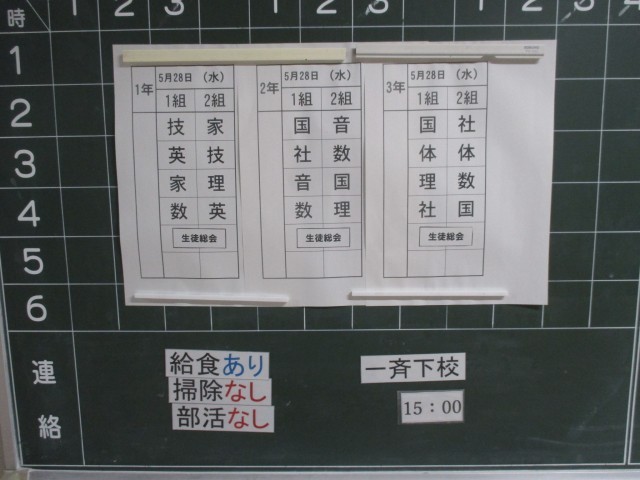 時 1 2 3 1 2 3 1 2 3 4
1
2
3
4
5
6
1年 5月28日 （水）
1組 2組
技 家
英 技
家 理
数 英
生徒総会
2年 5月28日 （水）
1組 2組
国 音
社 数
音 国
数 理
生徒総会
3年 5月28日 （水）
1組 2組
国 社
体 体
理 数
社 国
生徒総会
連絡
給食あり
掃除なし
部活なし
一斉下校
15：00